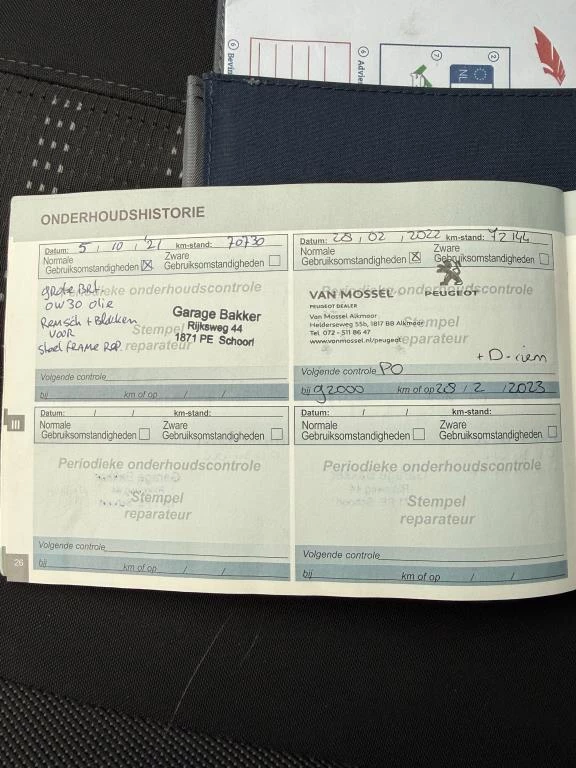 6 Bevin
6 Advie
7
2
NL
ONDERHOUDSHISTORIE
Datum: 5 / 10 / '21 km-stand: 70730
Normale Gebruiksomstandigheden ☒ Zware Gebruiksomstandigheden ☐
Periodieke onderhoudscontrole
Stempel
reparateur
grote Bet.
0W30 olie
Remsch + Blokken
VOOR
stoel frame Rep.
Garage Bakker
Rijksweg 44
1871 PE Schoorl
Volgende controle
bij km of op / /
Datum: 28 / 02 / 2022 km-stand: 72144
Normale Gebruiksomstandigheden ☒ Zware Gebruiksomstandigheden ☐
Periodieke onderhoudscontrole
Stempel
reparateur
VAN MOSSEL
PEUGEOT DEALER
PEUGEOT
Van Mossel Alkmaar
Helderseweg 55b, 1817 BB Alkmaar
Tel 072 - 511 86 47
www.vanmossel.nl/peugeot
+ D-riem
Volgende controle PO
bij 92000 km of op 28 / 2 / 2023
III
Datum: / / km-stand:
Normale Gebruiksomstandigheden ☐ Zware Gebruiksomstandigheden ☐
Periodieke onderhoudscontrole
Stempel
reparateur
Volgende controle
bij km of op / /
Datum: / / km-stand:
Normale Gebruiksomstandigheden ☐ Zware Gebruiksomstandigheden ☐
Periodieke onderhoudscontrole
Stempel
reparateur
Volgende controle
bij km of op / /
26